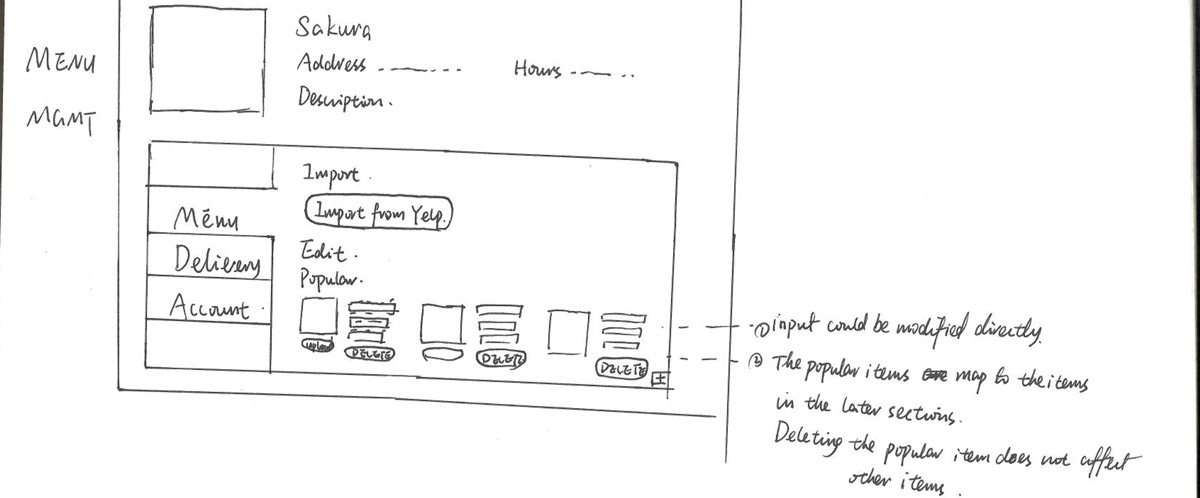 MENU
MGMT
Sakura
Address
Hours
Description.
Import.
Import from Yelp.
Edit.
Popular.
Menu
Delivery
Account.
Upload
DELETE
DELETE
DELETE
+
① input could be modified directly.
② The popular items map to the items
in the later sections.
Deleting the popular item does not affect
other items.